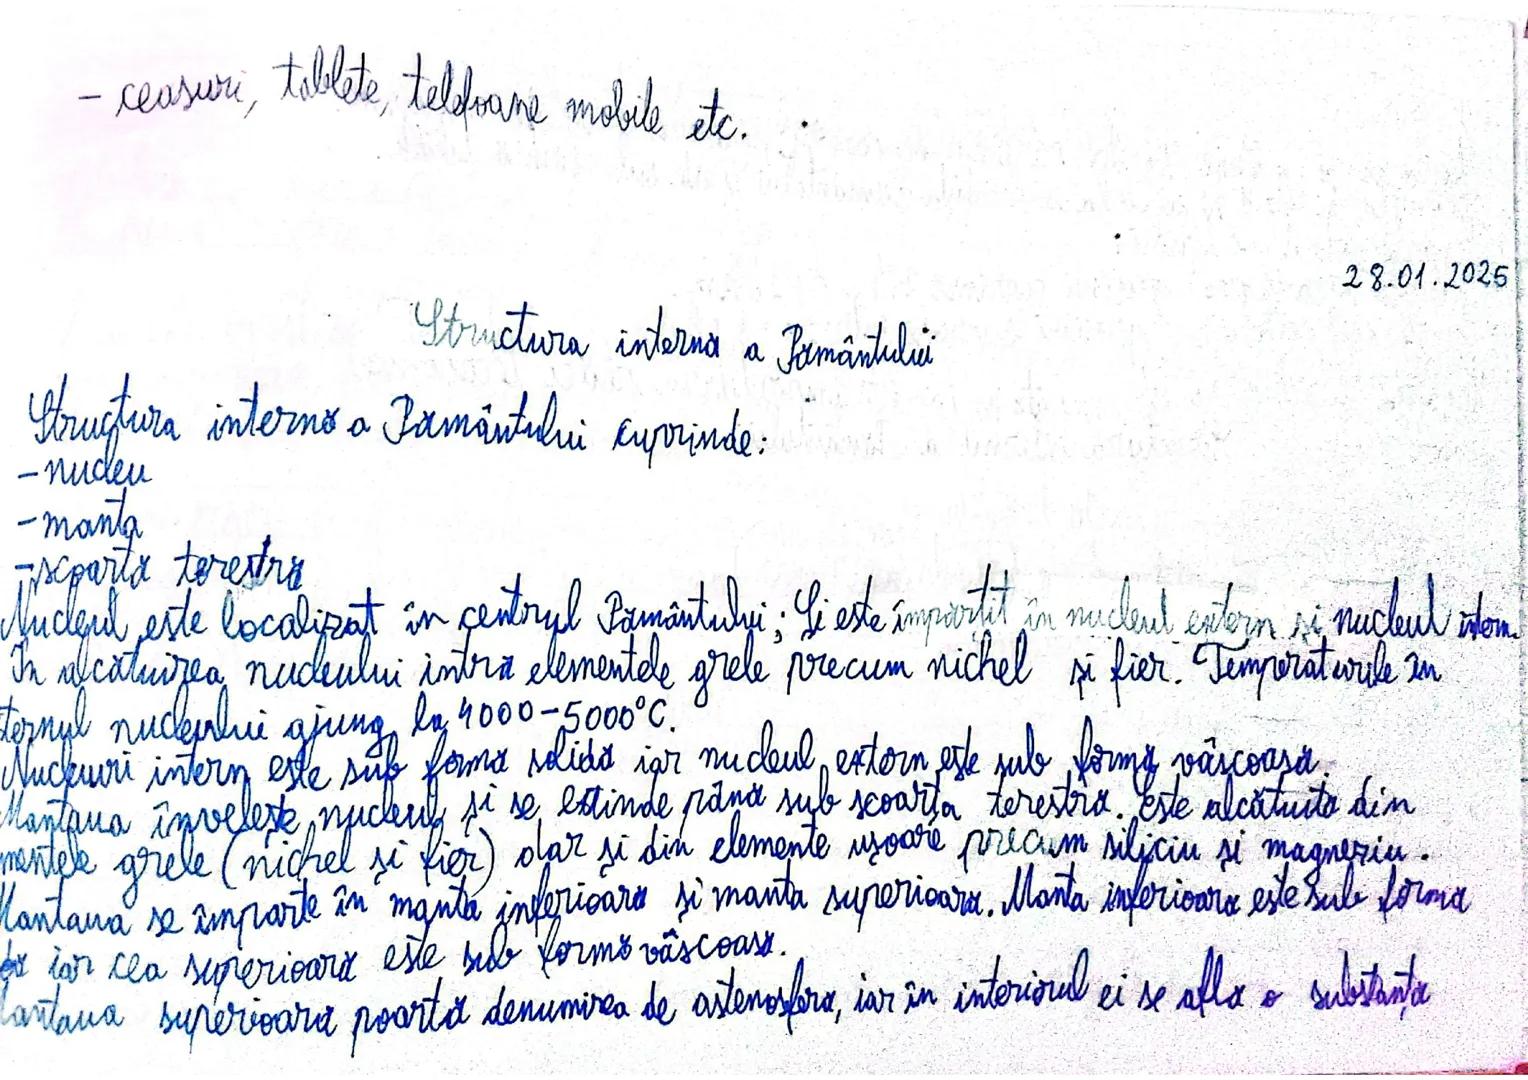 - ceasuri, tablete, telefoane mobile etc.
28.01.2025
Structura internă a Pământului
Structura internă a Pământului cuprinde:
- nucleu
- manta
- scoarță terestră
Nucleul este localizat în centrul Pământului; Și este împărțit în nucleul extern și nucleul intern.
În alcătuirea nucleului intră elementele grele precum nichel și fier. Temperaturile în
ternul nucleului ajung la 4000-5000°C.
Nucleuri intern este sub formă solidă iar nucleul extern este sub formă vâscoasă.
Mantaua învelește nucleul și se extinde până sub scoarța terestră. Este alcătuită din
mentele grele (nichel și fier) dar și din elemente ușoare precum siliciu și magneziu.
Mantaua se împarte în manta inferioară și manta superioară. Manta inferioară este sub formă
iar cea superioară este sub formă vâscoasă.
Mantaua superioară poartă denumirea de astenosfera, iar în interiorul ei se află o substanța